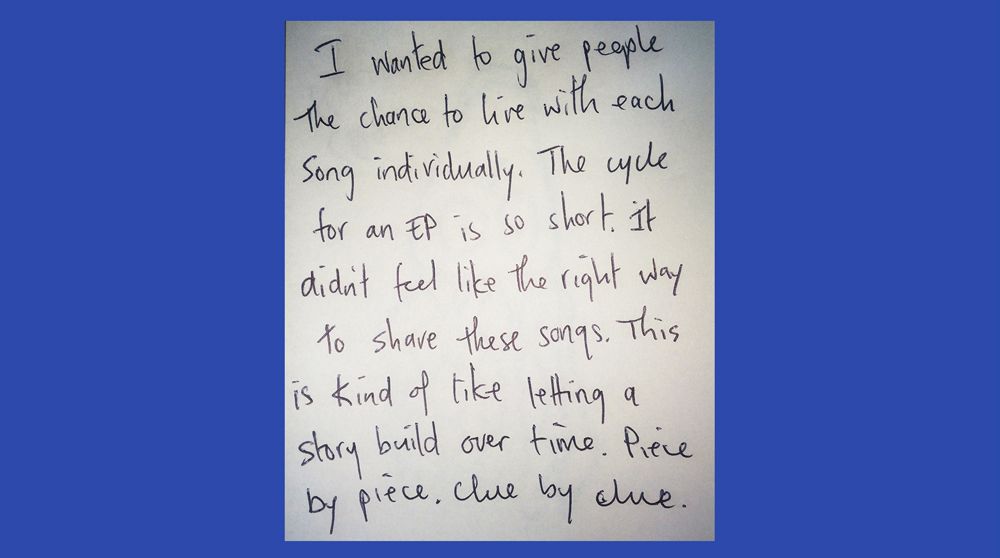 I wanted to give people
the chance to live with each
song individually. The cycle
for an EP is so short. It
didn't feel like the right way
to share these songs. This
is kind of like letting a
story build over time. Piece
by piece. Clue by clue.